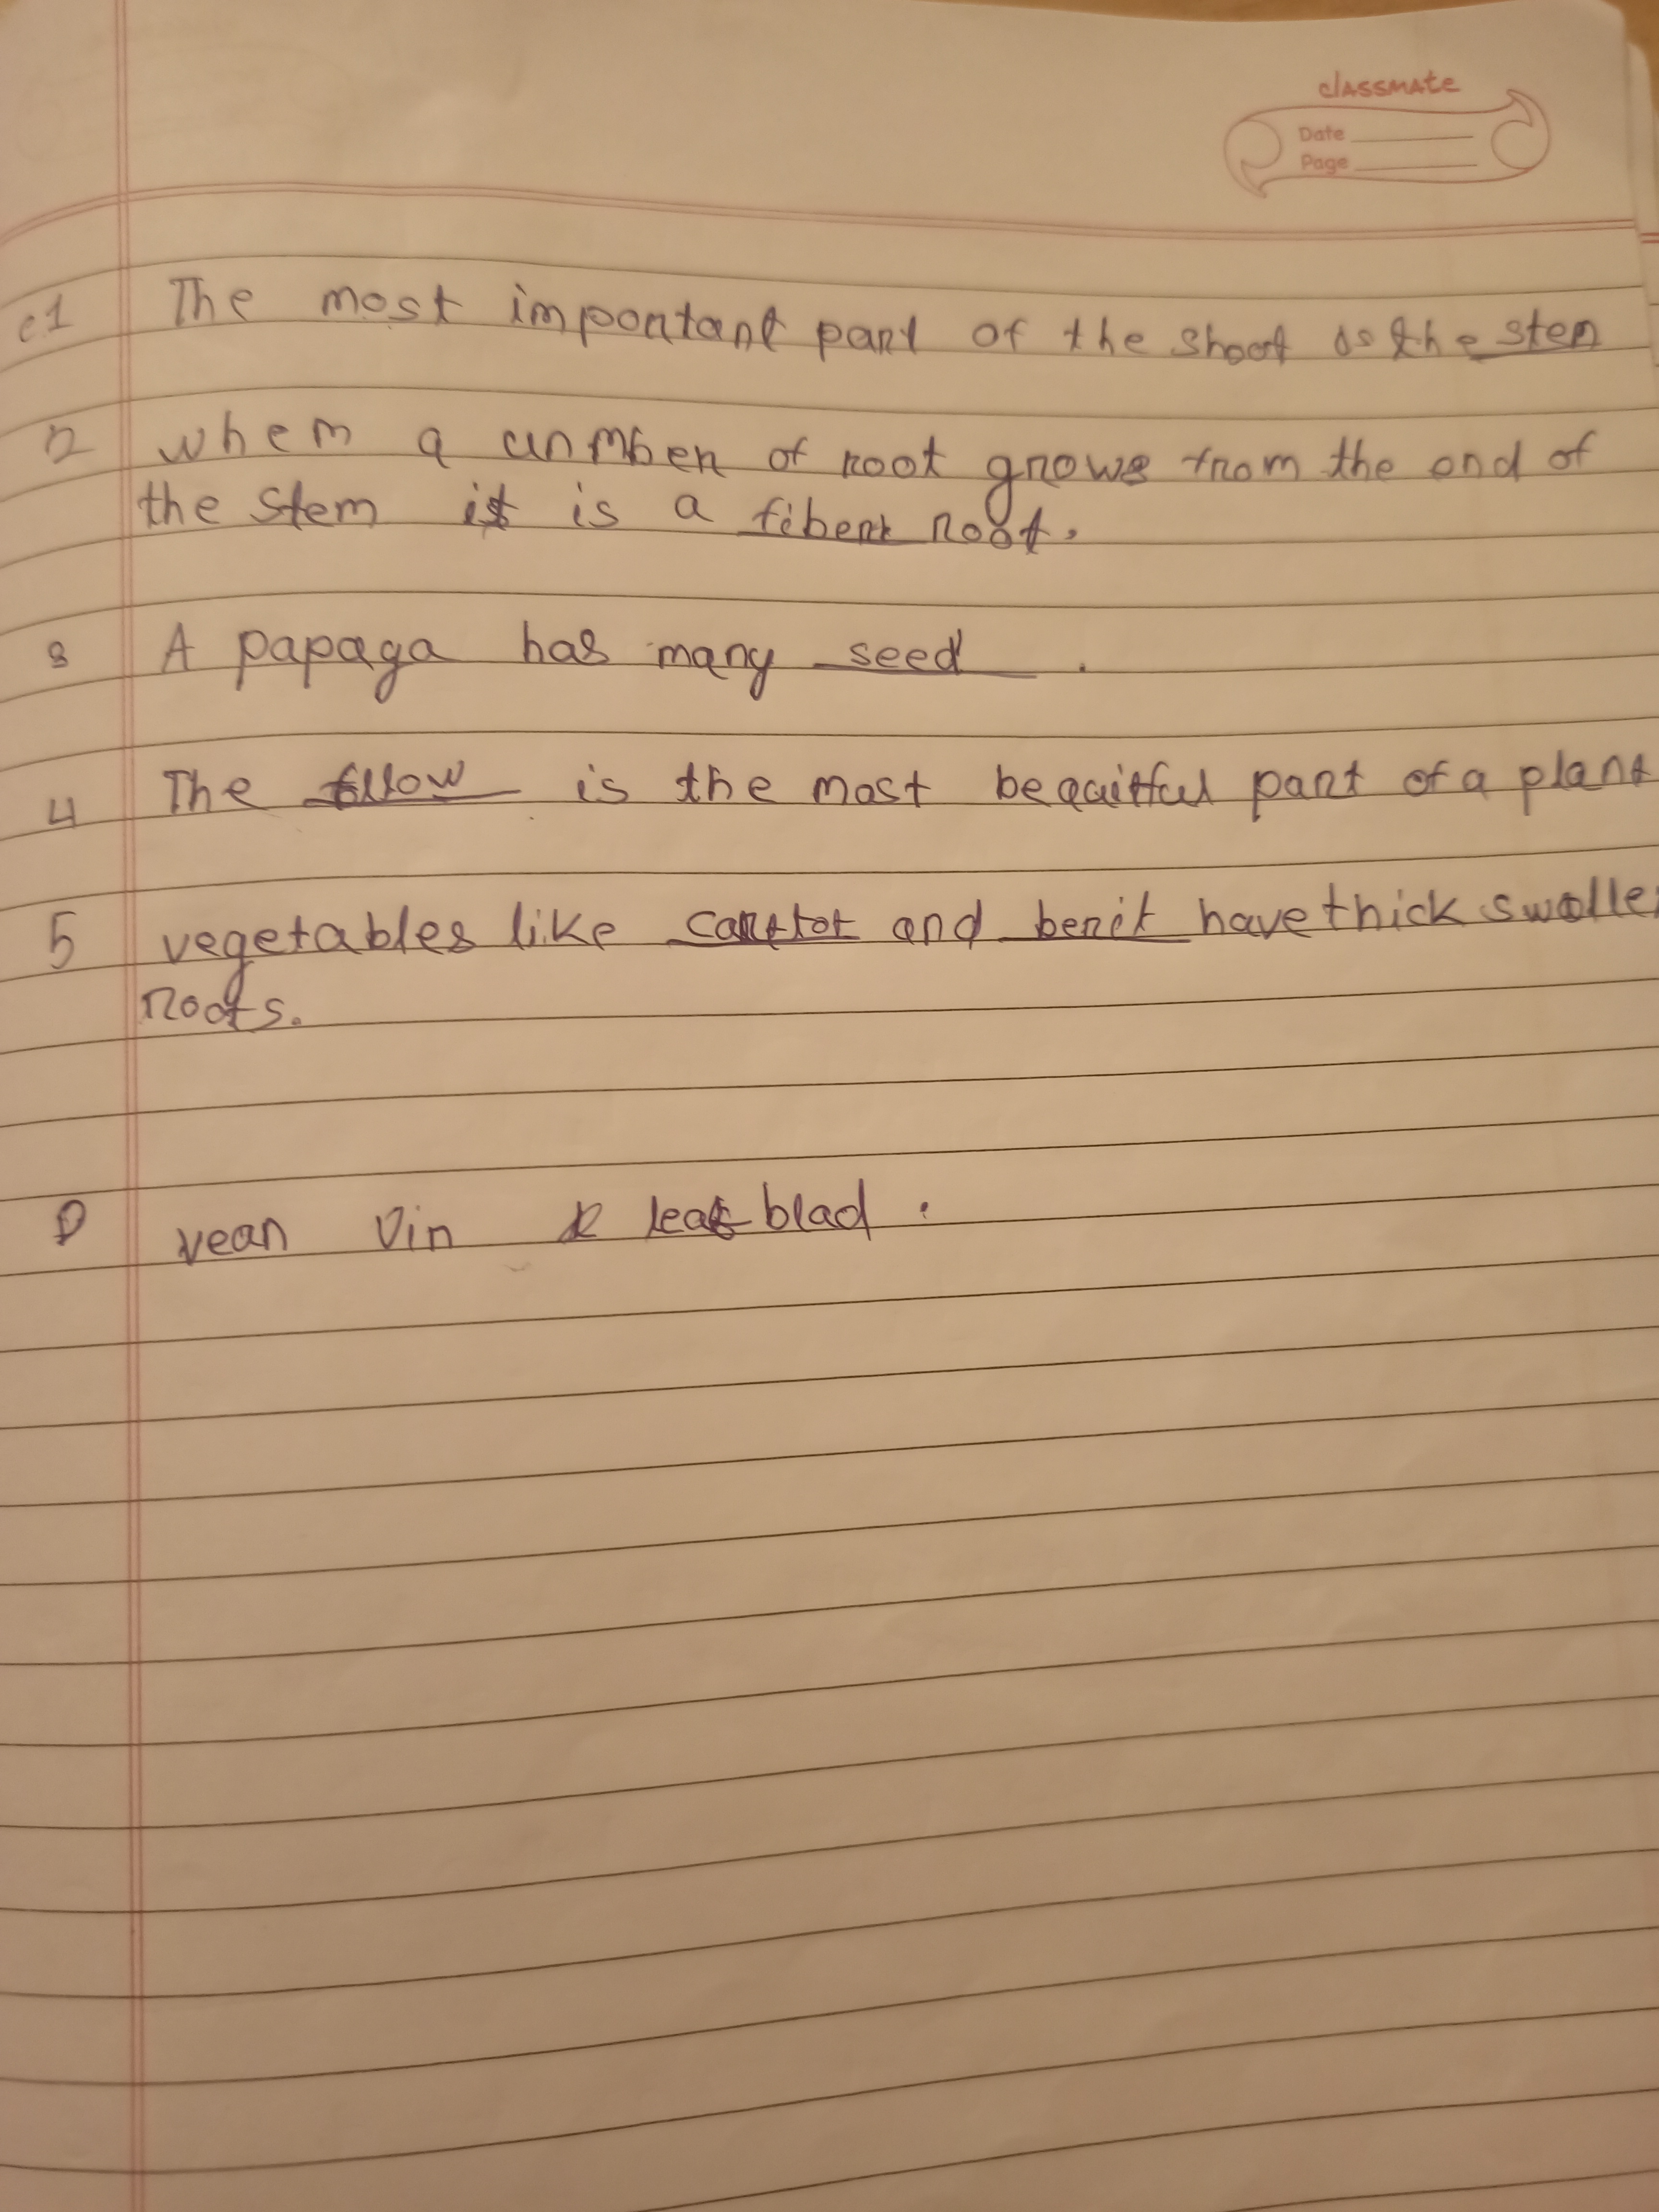 classmate
Date
Page
c.1 The most impontant pant of the shoot is the sten
2 whem a unmben of root gnows from the end of
the stem it is a fibenr Root.
3 A papaga has many seed .
4 The fllow is the most beqaitful pant of a plant
5 vegetables like carrtot and benit have thick swolle
Roots.
D vean Vin leaf blad .